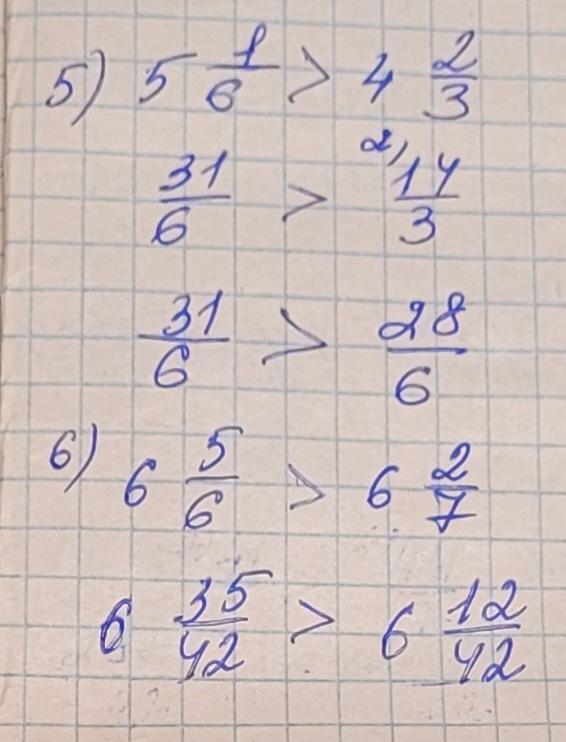 5) 5 1/6 > 4 2/3
31/6 > 2) 14/3
31/6 > 28/6
6) 6 5/6 > 6 2/7
6 35/42 > 6 12/42